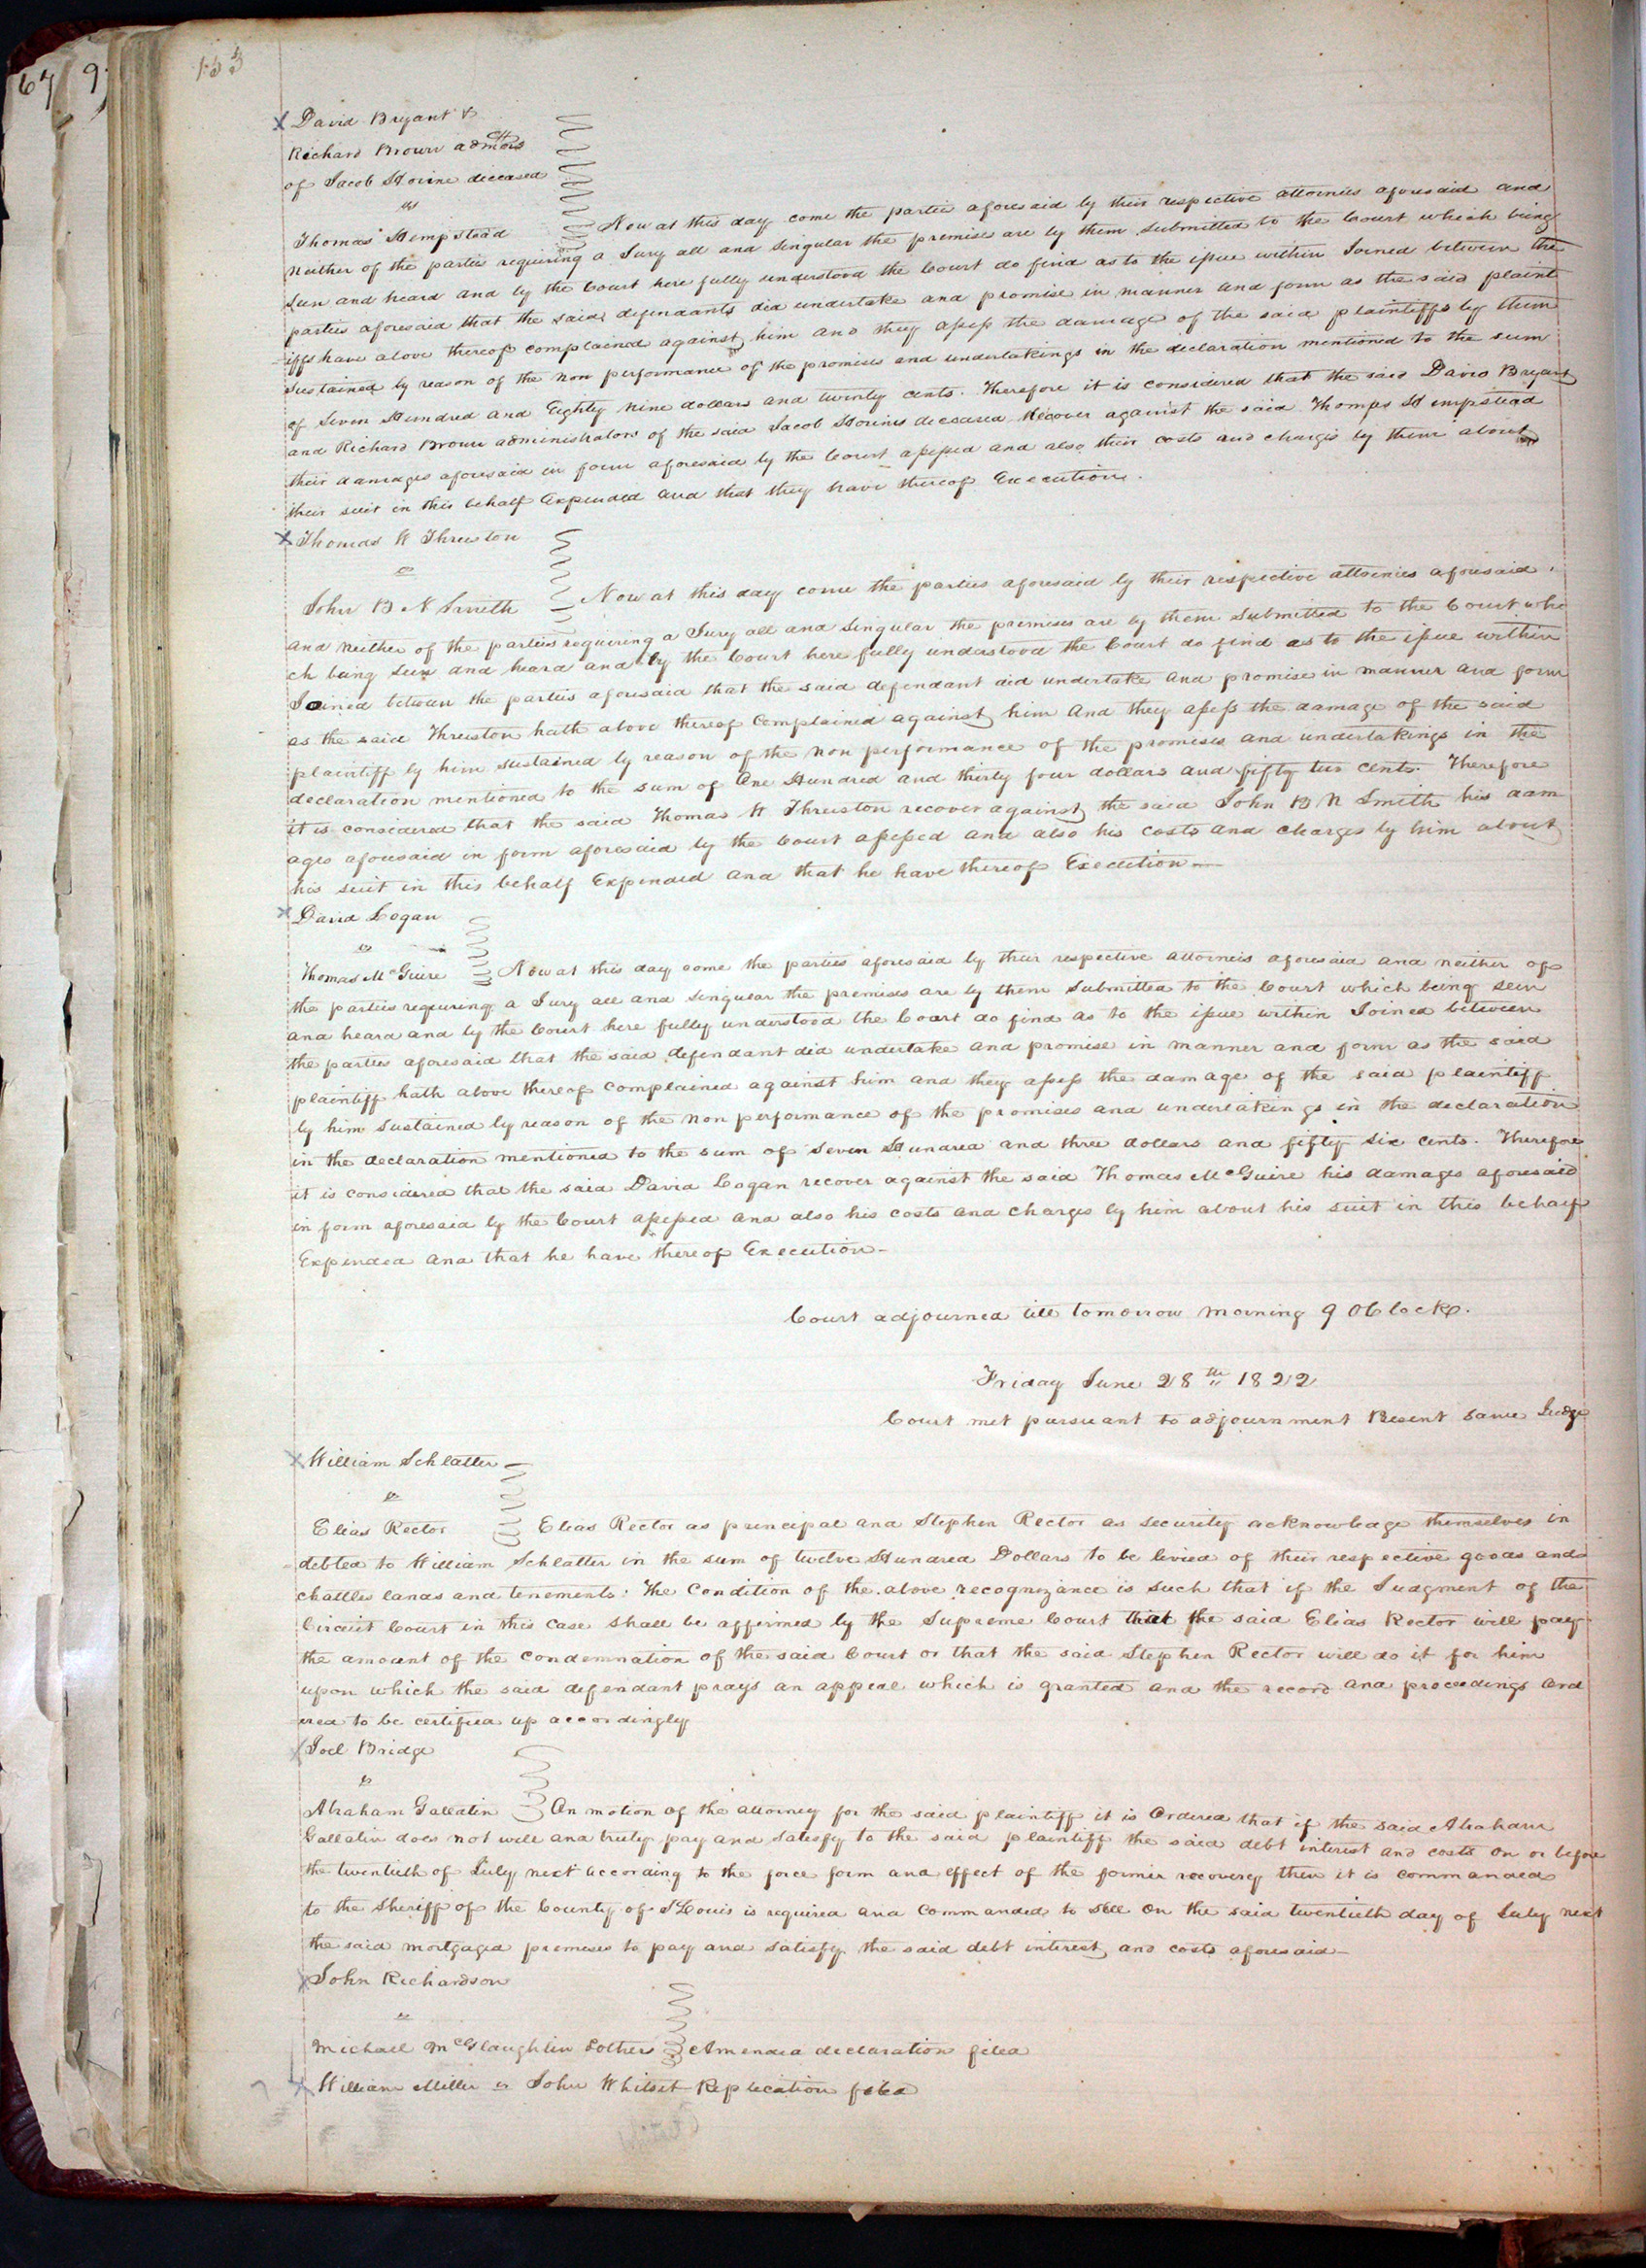 153
67 9
David Bryant &
Richard Brown admors
of Jacob Horine deceased
vs
Thomas Hempstead Now at this day come the parties aforesaid by their respective attornies aforesaid and
neither of the parties requiring a Jury all and singular the premises are by them submitted to the Court which being
seen and heard and by the Court here fully understood the Court do find as to the issue within Joined between the
parties aforesaid that the said defendants did undertake and promise in manner and form as the said plaint
iffs have above thereof complained against him and they assess the damage of the said plaintiffs by them
sustained by reason of the non performance of the promises and undertakings in the declaration mentioned to the sum
of Seven Hundred and Eighty nine dollars and twenty cents. Therefore it is considered that the said David Bryant
and Richard Brown administrators of the said Jacob Horine deceased Recover against the said Thomas Hempstead
their damages aforesaid in form aforesaid by the Court assessed and also their costs and charges by them about
their suit in this behalf Expended and that they have thereof Execution.
Thomas W Thruston
vs
John B N Smith Now at this day come the parties aforesaid by their respective attornies aforesaid
and neither of the parties requiring a Jury all and singular the premises are by them submitted to the Court whi
ch being seen and heard and by the Court here fully understood the Court do find as to the issue within
Joined between the parties aforesaid that the said defendant did undertake and promise in manner and form
as the said Thruston hath above thereof complained against him and they assess the damage of the said
plaintiff by him sustained by reason of the non performance of the promises and undertakings in the
declaration mentioned to the sum of One Hundred and thirty four dollars and fifty two cents. Therefore
it is considered that the said Thomas W Thruston recover against the said John B N Smith his dam
ages aforesaid in form aforesaid by the Court assessed and also his costs and charges by him about
his suit in this behalf Expended and that he have thereof Execution—
David Logan
vs
Thomas McGuire Now at this day come the parties aforesaid by their respective attorneis aforesaid and neither of
the parties requiring a Jury all and singular the premises are by them submitted to the Court which being seen
and heard and by the Court here fully understood the Court do find as to the issue within Joined between
the parties aforesaid that the said defendant did undertake and promise in manner and form as the said
plaintiff hath above thereof complained against him and they assess the damage of the said plaintiff
by him sustained by reason of the non performance of the promises and undertakings in the declaration
in the declaration mentioned to the sum of Seven Hundred and three dollars and fifty six cents. Therefore
it is considered that the said David Logan recover against the said Thomas McGuire his damages aforesaid
in form aforesaid by the Court assessed and also his costs and charges by him about his suit in this behalf
Expended and that he have thereof Execution—
Court adjourned till tomorrow morning 9 OClock.
Friday June 28th 1822
Court met pursuant to adjournment Present same Judge
William Schlatter
vs
Elias Rector Elias Rector as principal and Stephen Rector as security acknowledge themselves in
debted to William Schlatter in the sum of twelve Hundred Dollars to be levied of their respective goods and
chattles lands and tenements. The Condition of the above recognizance is such that if the Judgment of the
Circuit Court in this case shall be affirmed by the Supreme Court that the said Elias Rector will pay
the amount of the condemnation of the said Court or that the said Stephen Rector will do it for him
upon which the said defendant prays an appeal which is granted and the record and proceedings ord
ered to be certified up accordingly
Joel Bridge
vs
Abraham Gallatin On motion of the attorney for the said plaintiff it is Ordered that if the said Abraham
Gallatin does not well and truly pay and satisfy to the said plaintiff the said debt interest and costs on or before
the twentieth of July next according to the force form and effect of the former recovery then it is commanded
to the Sheriff of the County of St Louis is required and commanded to sell on the said twentieth day of July next
the said mortgaged premises to pay and satisfy the said debt interest and costs aforesaid—
John Richardson
vs
Michael McGlaughlin & others Amended declaration filed
William Miller vs John Whitset Replication filed